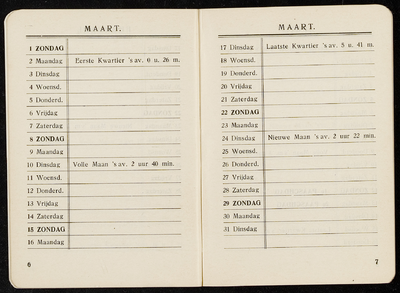 MAART.
1 ZONDAG
2 Maandag Eerste Kwartier 's av. 6 u. 26 m.
3 Dinsdag
4 Woensd.
5 Donderd.
6 Vrijdag
7 Zaterdag
8 ZONDAG
9 Maandag
10 Dinsdag Volle Maan 's av. 2 uur 40 min.
11 Woensd.
12 Donderd.
13 Vrijdag
14 Zaterdag
15 ZONDAG
16 Maandag
6
MAART.
17 Dinsdag Laatste Kwartier 's av. 5 u. 41 m.
18 Woensd.
19 Donderd.
20 Vrijdag
21 Zaterdag
22 ZONDAG
23 Maandag
24 Dinsdag Nieuwe Maan 's av. 2 uur 22 min.
25 Woensd.
26 Donderd.
27 Vrijdag
28 Zaterdag
29 ZONDAG
30 Maandag
31 Dinsdag
7